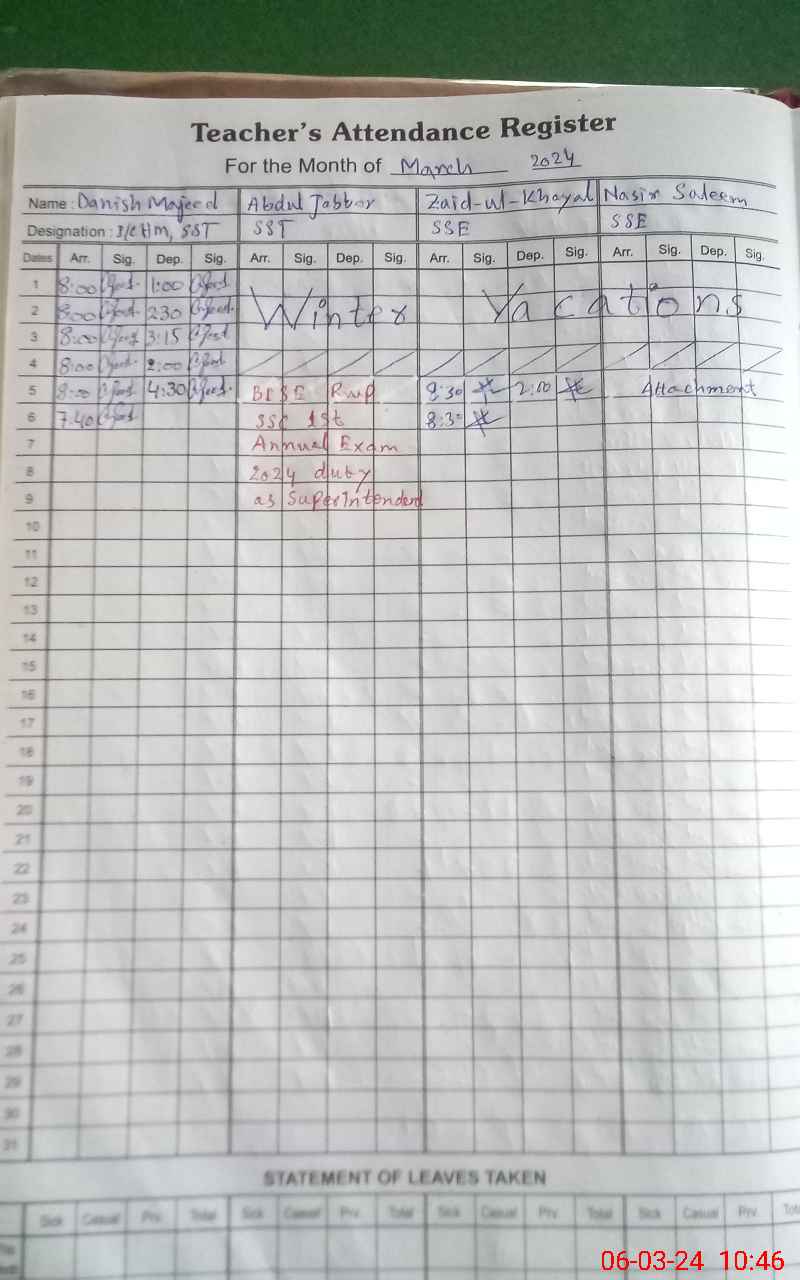 Teacher's Attendance Register
For the Month of March 2024
Name : Danish Majeed Abdul Jabbar Zaid-ul-Khayal Nasir Saleem
Designation : I/C Hm, SST SST SSE SSE
Dates Arr. Sig. Dep. Sig. Arr. Sig. Dep. Sig. Arr. Sig. Dep. Sig. Arr. Sig. Dep. Sig.
1 8:00 1:00
2 8:00 230 Winter Vacations
3 8:00 3:15
4 8:00 2:00
5 8:00 4:30 BISE Rwp 8:30 2:00 Attachment
6 7:40 SSC 1st 8:30
7 Annual Exam
8 2024 duty
9 as Superintendent
10
11
12
13
14
15
16
17
18
19
20
21
22
23
24
25
26
27
28
29
30
31
STATEMENT OF LEAVES TAKEN
Sick Casual Prv. Total Sick Casual Prv. Total Sick Casual Prv. Total Sick Casual Prv.
06-03-24 10:46